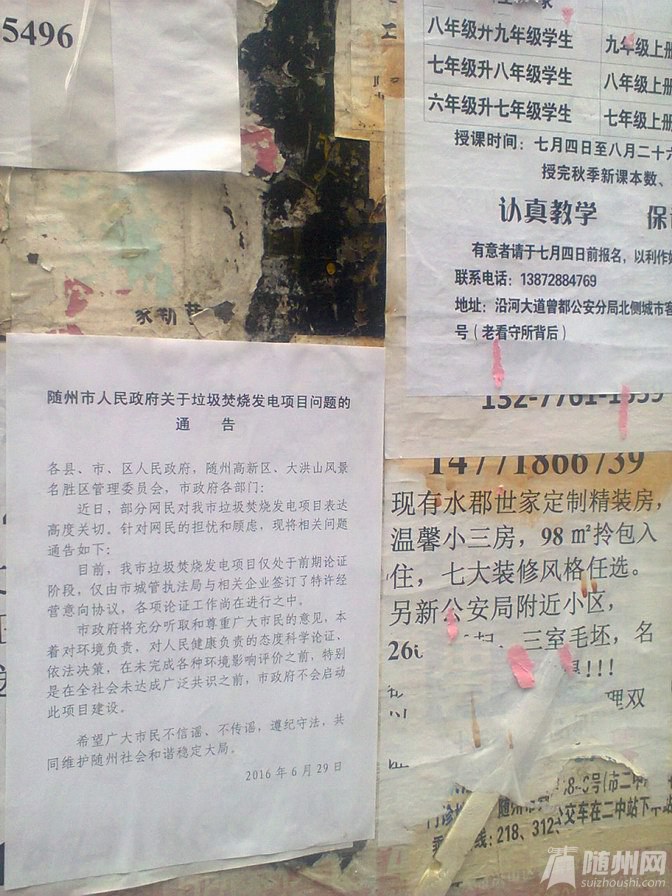 5496
八年级升九年级学生
九年级上册
七年级升八年级学生
八年级上册
六年级升七年级学生
七年级上册
授课时间：七月四日至八月二十六
授完秋季新课本数、
认真教学 保
有意者请于七月四日前报名，以利作好
联系电话：13872884769
地址：沿河大道曾都公安分局北侧城市客
号（老看守所背后）
随州市人民政府关于垃圾焚烧发电项目问题的
通 告
各县、市、区人民政府，随州高新区、大洪山风景
名胜区管理委员会，市政府各部门：
近日，部分网民对我市垃圾焚烧发电项目表达
高度关切。针对网民的担忧和顾虑，现将相关问题
通告如下：
目前，我市垃圾焚烧发电项目仅处于前期论证
阶段，仅由市城管执法局与相关企业签订了特许经
营意向协议，各项论证工作尚在进行之中。
市政府将充分听取和尊重广大市民的意见，本
着对环境负责，对人民健康负责的态度科学论证、
依法决策，在未完成各种环境影响评价之前，特别
是在全社会未达成广泛共识之前，市政府不会启动
此项目建设。
希望广大市民不信谣，不传谣，遵纪守法，共
同维护随州社会和谐稳定大局。
2016年6月29日
14771866739
现有水郡世家定制精装房，
温馨小三房，98㎡拎包入
住，七大装修风格任选。
另新公安局附近小区，
三室毛坯，名
!!!
双
号(市二中
公交车在二中站下车
线：218、312
随州网
suizhoushi.com